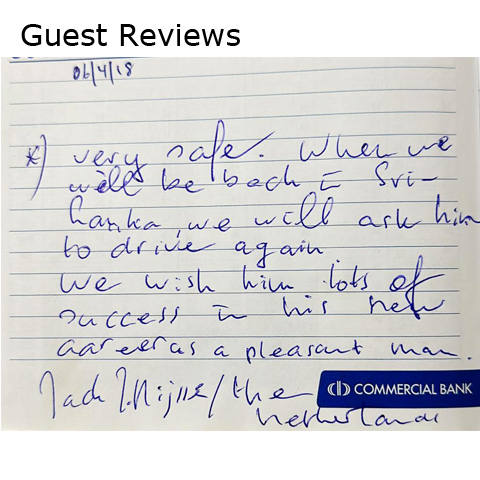 Guest Reviews
06/4/18
*) very safe. When we
will be back in Sri-
hanka, we will ask him
to drive again.
We wish him lots of
success in his new
as a pleasant man.
the
COMMERCIAL BANK
Netherlands